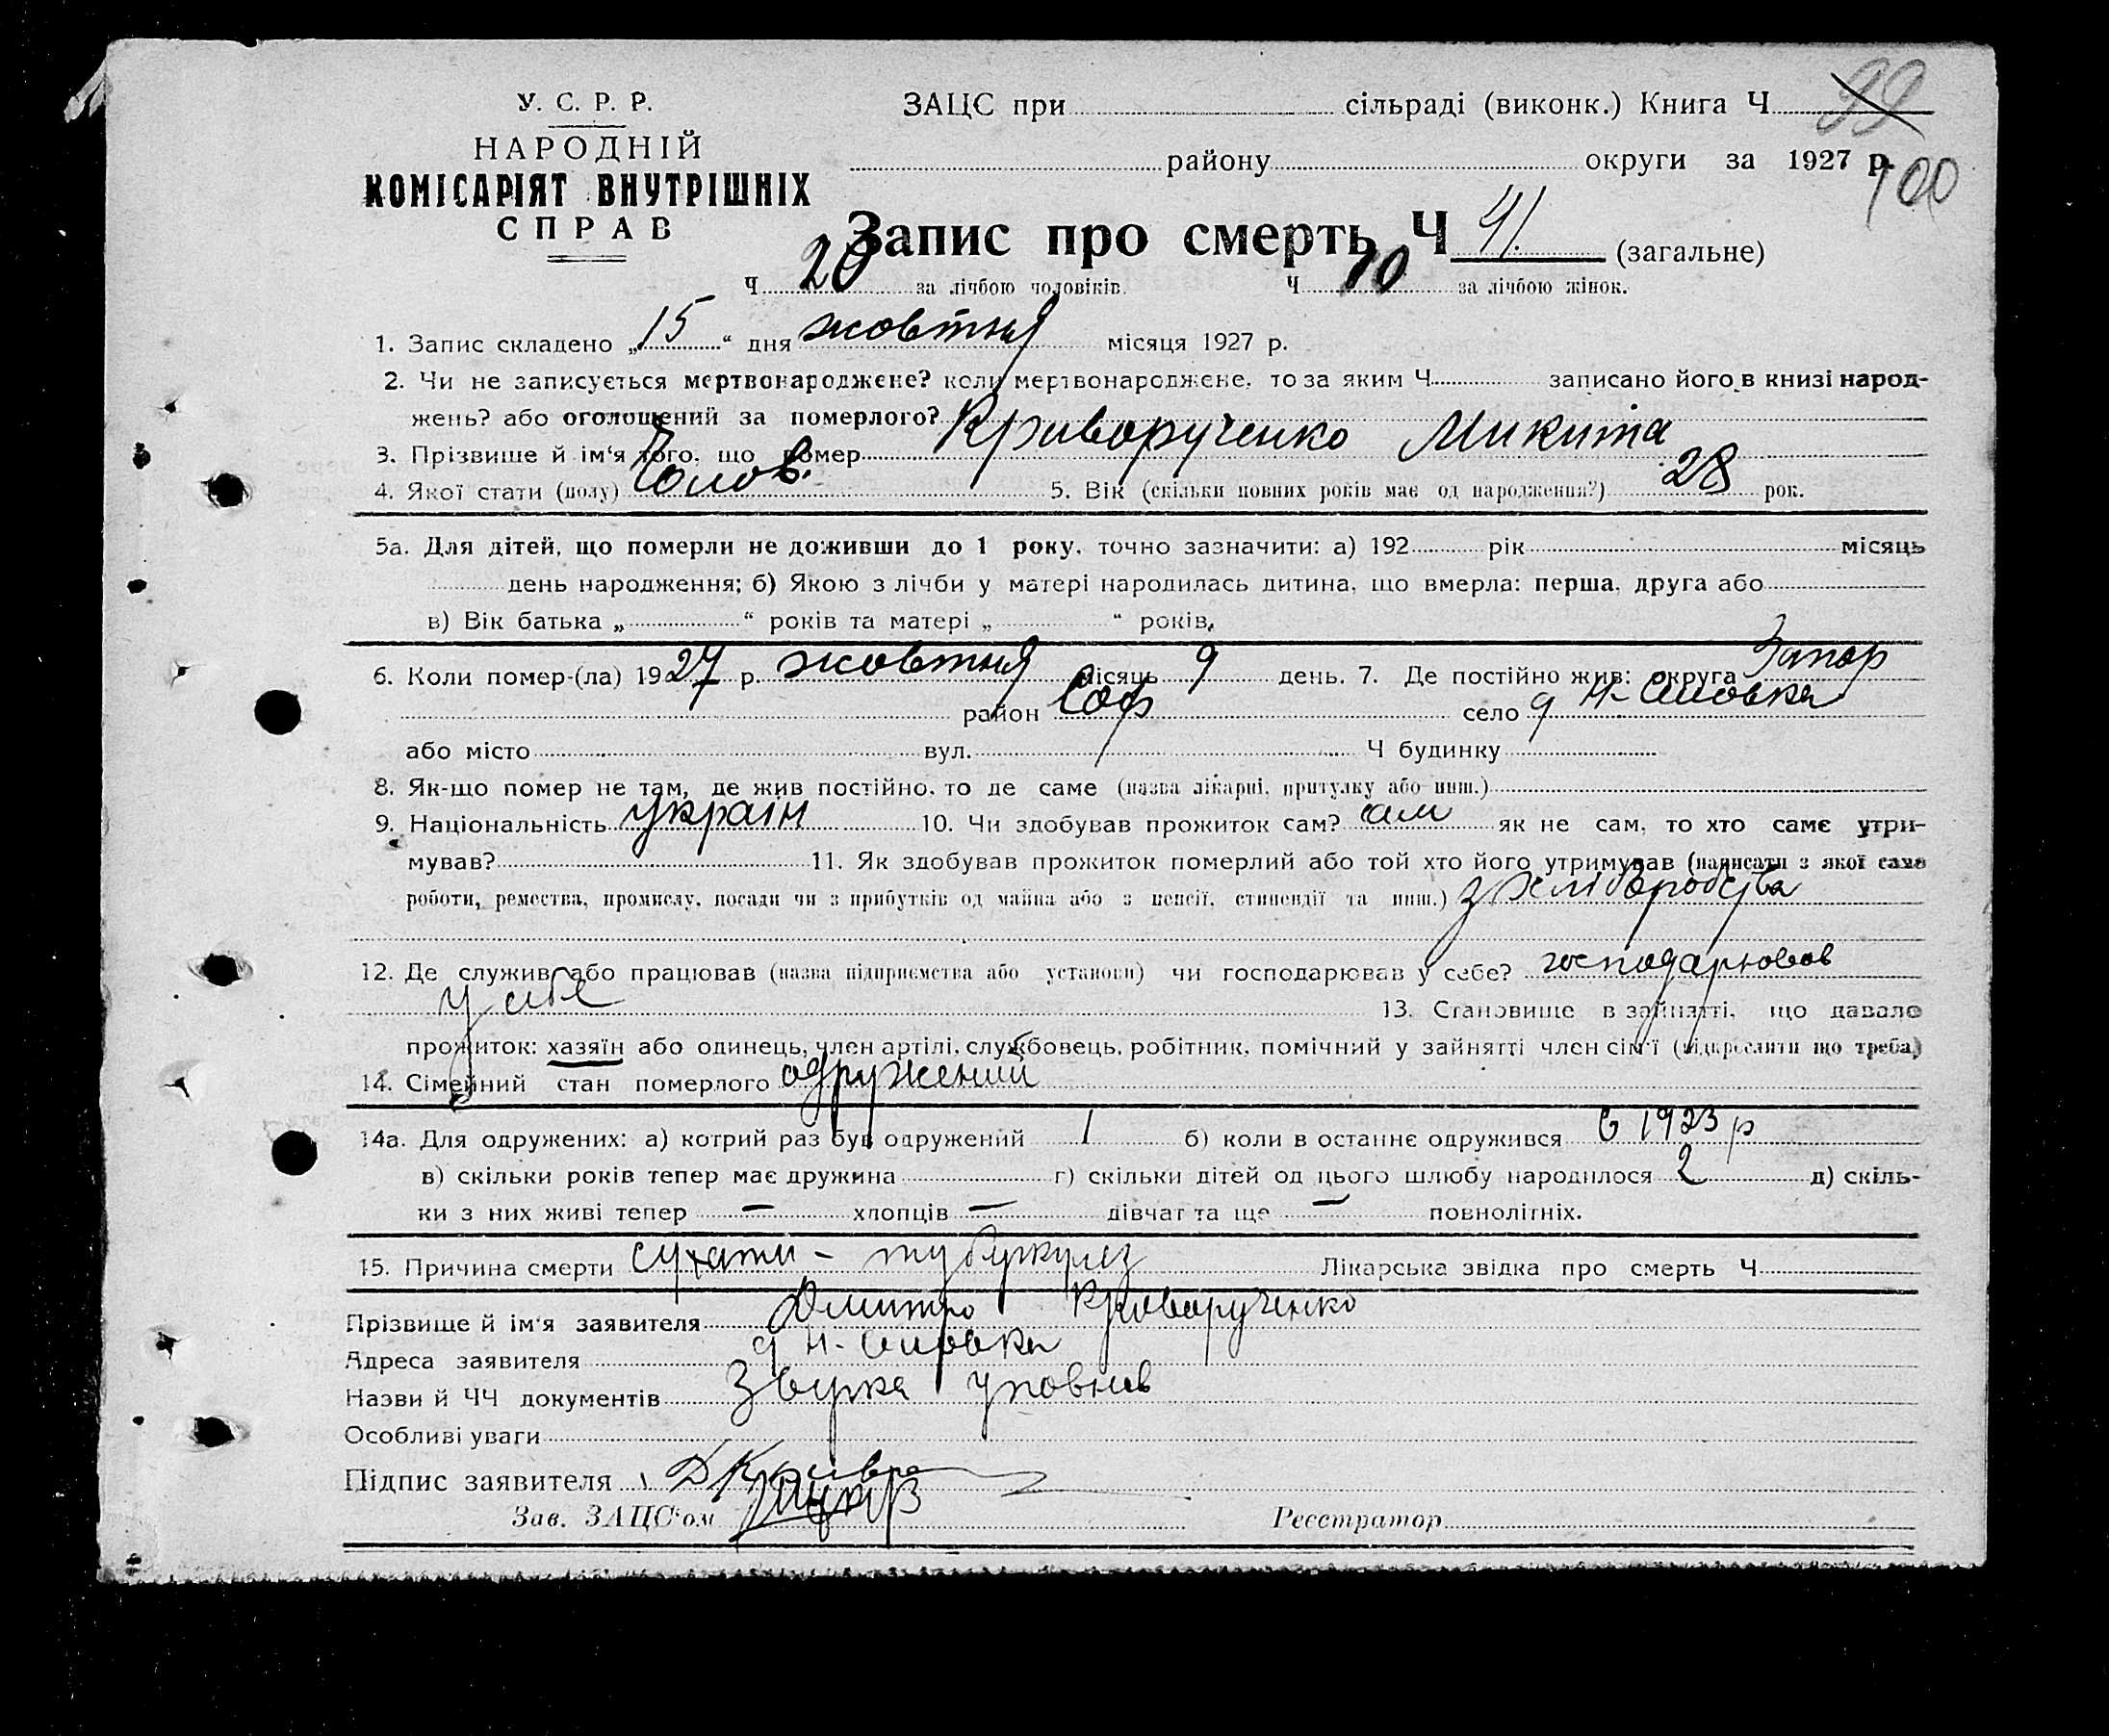 99
100
У. С. Р. Р.
НАРОДНІЙ
КОМІСАРІЯТ ВНУТРІШНІХ
СПРАВ
ЗАЦС при сільраді (виконк.) Книга Ч
району округи за 1927 р.
Запис про смерть Ч 41. (загальне)
Ч 20 за лічбою чоловіків. Ч 10 за лічбою жінок.
1. Запис складено „15“ дня жовтня місяця 1927 р.
2. Чи не записується мертвонароджене? коли мертвонароджене, то за яким Ч записано його в книзі народ-
жень? або оголошений за померлого?
3. Прізвище й ім‘я того, що помер Криворученко Микита
4. Якої стати (полу) Чолов. 5. Вік (скільки повних років має од народження?) 28 рок.
5а. Для дітей, що померли не доживши до 1 року, точно зазначити: а) 192 рік місяць
день народження; б) Якою з лічби у матері народилась дитина, що вмерла: перша, друга або
в) Вік батька „ “ років та матері „ “ років,
6. Коли помер-(ла) 1927 р. жовтня місяць 9 день. 7. Де постійно жив: округа Запор
район Соф село д Н-
або місто вул. Ч будинку
8. Як-що помер не там, де жив постійно, то де саме (назва лікарні, притулку або инш.)
9. Національність україн 10. Чи здобував прожиток сам? сам як не сам, то хто саме утри-
мував? 11. Як здобував прожиток померлий або той хто його утримував (написати з якої саме
роботи, ремества, промислу, посади чи з прибутків од майна або з пенсії, стипендії та инш.) з хліборобства
12. Де служив або працював (назва підприємства або установи) чи господарював у себе? господарював
у себе 13. Становище в зайнятті, що давало
прожиток: хазяїн або одинець, член артілі, службовець, робітник, помічний у зайнятті член сім‘ї (підкреслити що треба)
14. Сімейний стан померлого одружений
14а. Для одружених: а) котрий раз був одружений 1 б) коли в останнє одружився в 1923 р
в) скільки років тепер має дружина г) скільки дітей од цього шлюбу народилося 2 д) скіль-
ки з них живі тепер — хлопців — дівчат та ще — повнолітніх.
15. Причина смерти сухоти - туберкулез Лікарська звідка про смерть Ч
Прізвище й ім‘я заявителя Дмитро Криворученко
Адреса заявителя д Н-
Назви й ЧЧ документів
Особливі уваги
Підпис заявителя
Зав. ЗАЦС‘ом Реєстратор